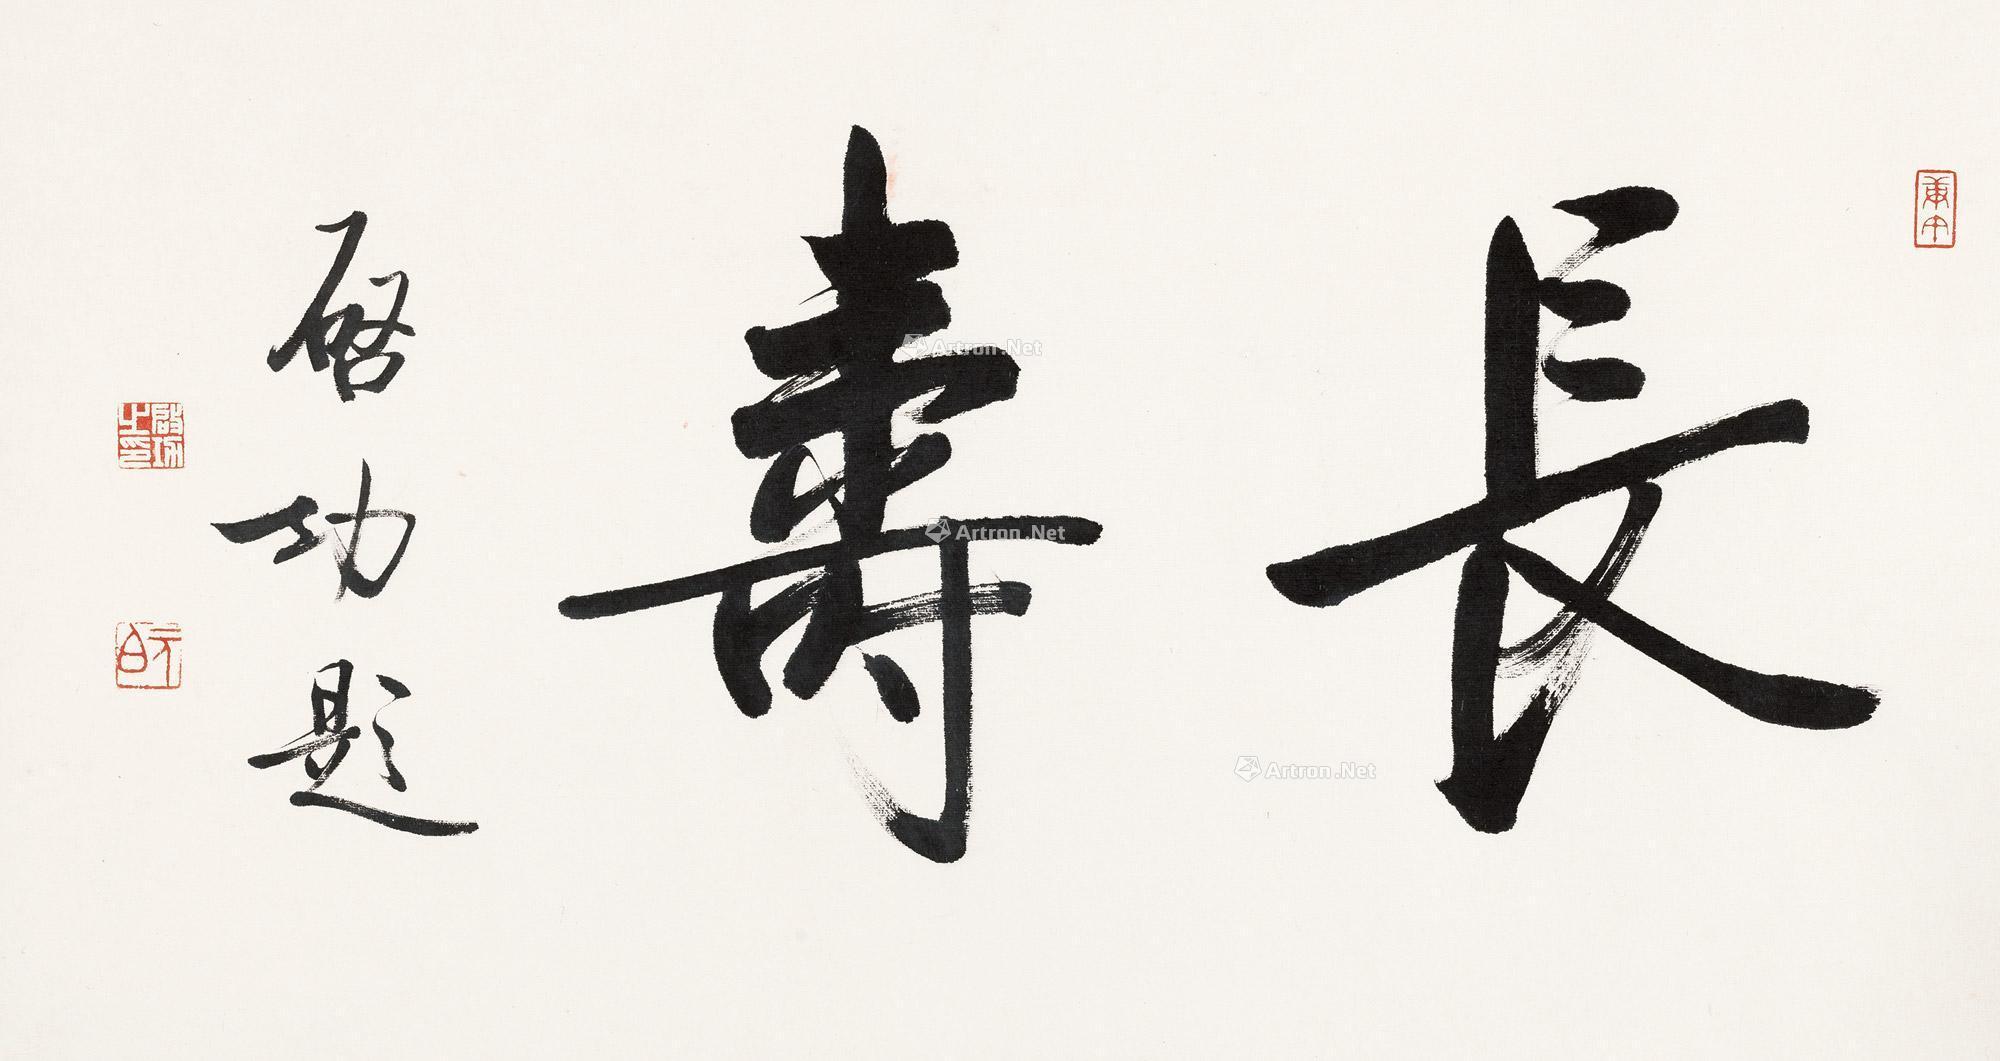 長壽
啓功題
啟功之印
元白
Artron.Net
Artron.Net
Artron.Net